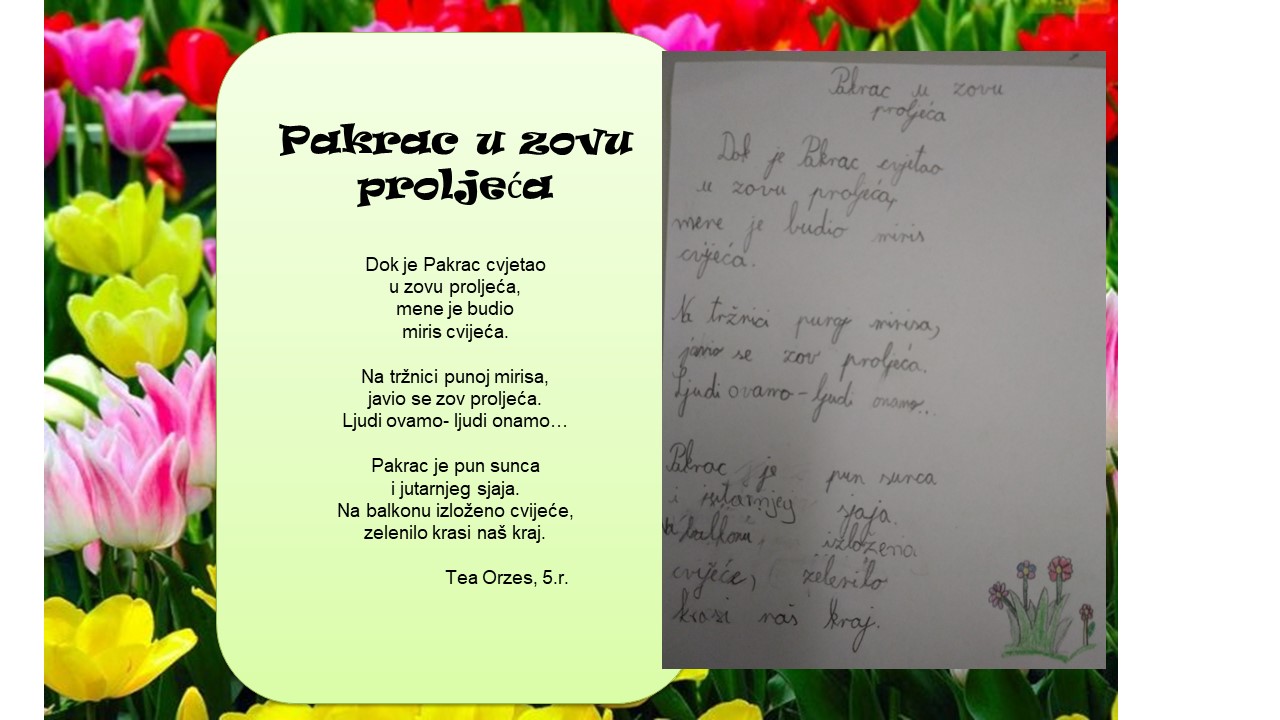 Pakrac u zovu
proljeća
Dok je Pakrac cvjetao
u zovu proljeća,
mene je budio
miris cvijeća.
Na tržnici punoj mirisa,
javio se zov proljeća.
Ljudi ovamo- ljudi onamo…
Pakrac je pun sunca
i jutarnjeg sjaja.
Na balkonu izloženo cvijeće,
zelenilo krasi naš kraj.
Tea Orzes, 5.r.
Pakrac u zovu
proljeća
Dok je Pakrac cvjetao
u zovu proljeća,
mene je budio miris
cvijeća.
Na tržnici punoj mirisa,
javio se zov proljeća.
Ljudi ovamo - ljudi onamo...
Pakrac je pun sunca
i jutarnjeg sjaja.
Na balkonu izloženo
cvijeće, zelenilo
krasi naš kraj.